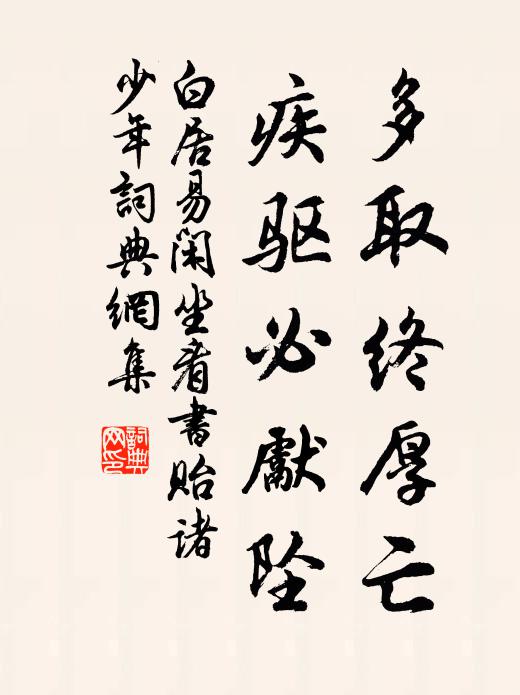 多取终厚亡
疾驱必獻坠
白居易閑坐看書貽诸
少年詞典網集
詞典网印